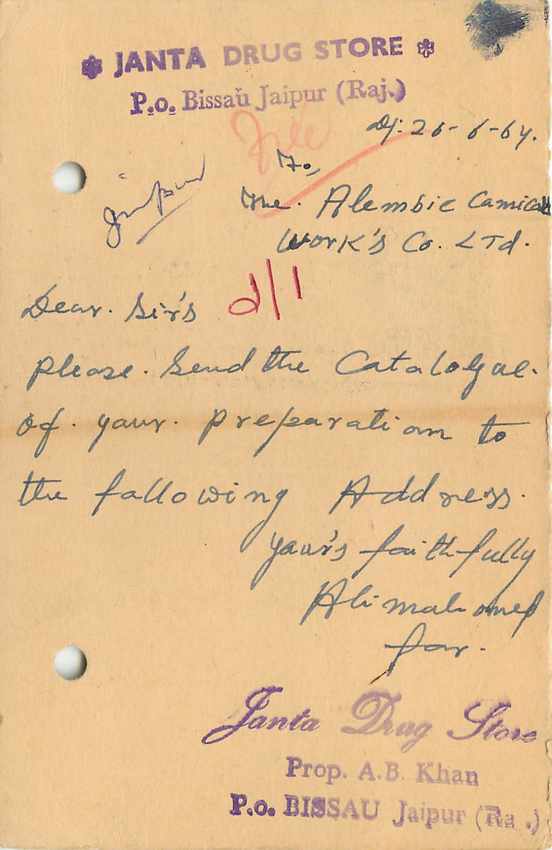 JANTA DRUG STORE
P.o. Bissau Jaipur (Raj.)
Free
Dt: 26-6-64.
To,
Jaipur
The. Alembic Camical
Work's Co. LTd.
Dear. Sir's
d/1
Please. Send the Catalogue.
of. your. preparation to
the following Address.
your's faithfully
Alimahomed
for.
Janta Drug Store
Prop. A.B. Khan
P.o. BISSAU Jaipur (Ra .)